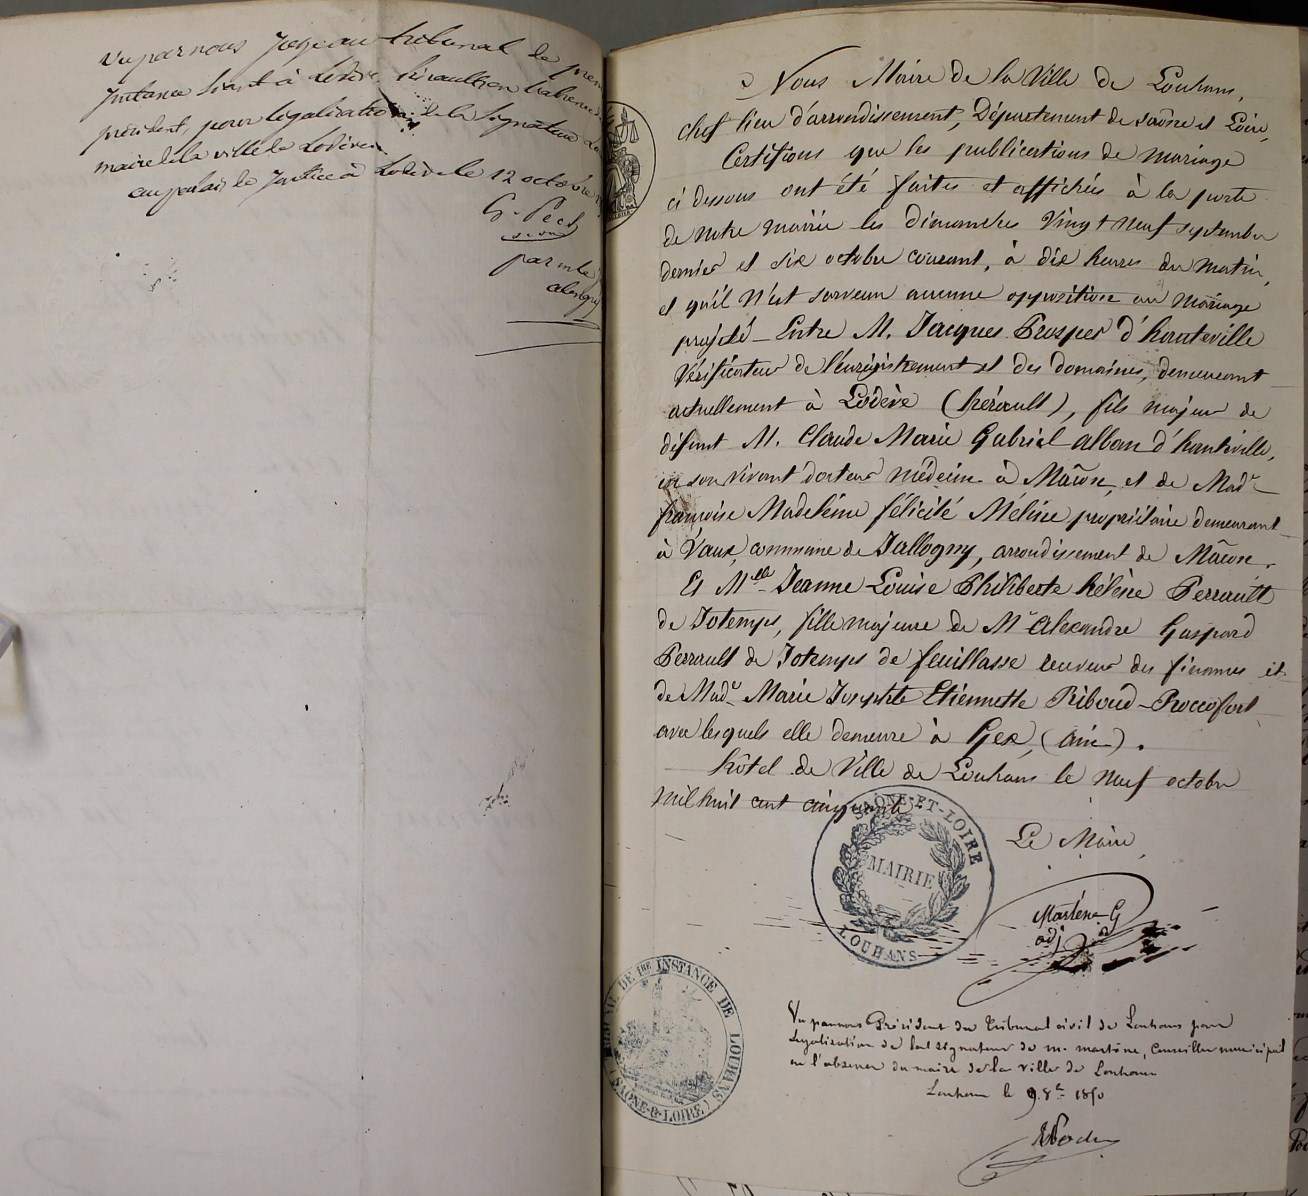 Vu par nous Juge au tribunal de prem
Instance séant à Lodève, hérault, en l'absence du
président, pour légalisation de la Signature du
maire de la ville de Lodève.
au palais de Justice à Lodève le 12 octobre
G. Pech
par m le
Nous Maire de la Ville de Louhans,
chef lieu d'arrondissement, Département de saône et Loire,
Certifions que les publications de mariage
ci dessous ont été faites et affichées à la porte
de notre mairie les dimanches Vingt neuf septembre
dernier et six octobre courant, à dix heures du matin,
et qu'il n'est survenu aucune opposition au mariage
projeté – Entre M. Jacques Prosper d'hauteville
Vérificateur de l'enregistrement et des domaines, demeurant
actuellement à Lodève (hérault), fils majeur de
défunt M. Claude Marie Gabriel alban d'hauteville,
en son vivant docteur médecin à Mâcon, et de Made
françoise Madeleine félicité Méline propriétaire demeurant
à Vaux, commune de Jallogny, arrondissement de Mâcon.
Et Melle Jeanne Louise Philiberte hélène Perrault
de Jotemps, fille majeure de Mr Alexandre Gaspard
Perrault de Jotemps de feuillasse receveur des finances et
de Made Marie Josephte Etiennette Riboud-Roccofort
avec lesquels elle demeure à Gex, (ain).
hôtel de Ville de Louhans le neuf octobre
mil huit cent cinquante
Le Maire
SAÔNE-ET-LOIRE
MAIRIE
LOUHANS
Martène G
adj
DE 1RE INSTANCE DE LOUHANS
(SAONE-&-LOIRE)
Vu par nous Président du Tribunal civil de Louhans pour
Légalisation de la signature de m. martène, Conseiller municipal
en l'absence du maire de la ville de Louhans
Louhans le 9. 8re 1850